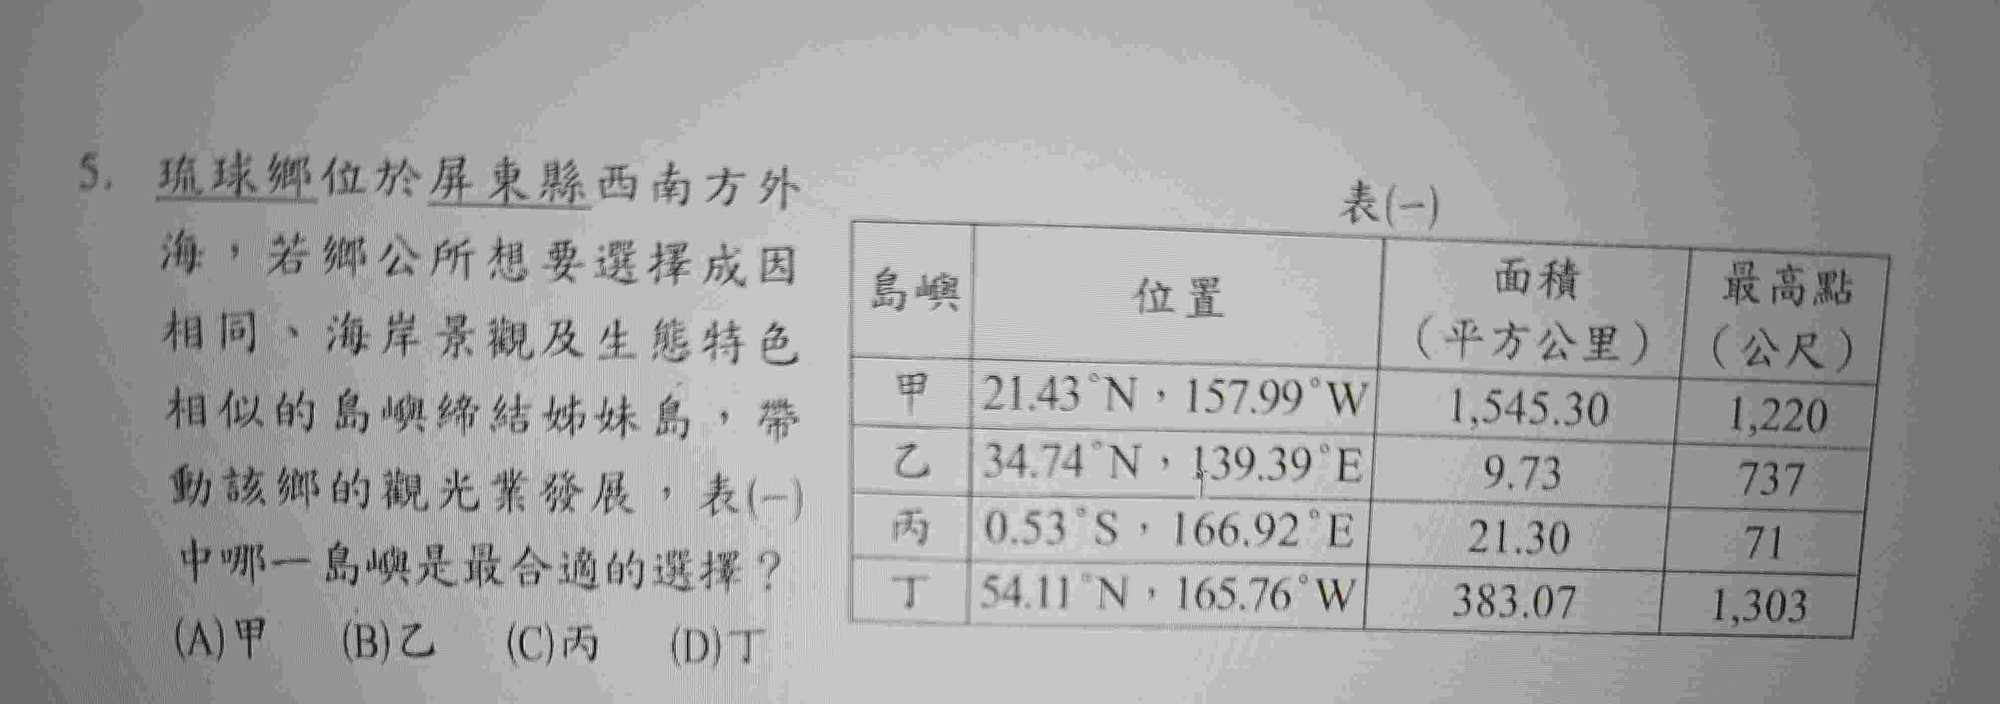 5. 琉球鄉位於屏東縣西南方外
海，若鄉公所想要選擇成因
相同、海岸景觀及生態特色
相似的島嶼締結姊妹島，帶
動該鄉的觀光業發展，表(一)
中哪一島嶼是最合適的選擇？
(A)甲 (B)乙 (C)丙 (D)丁
表(一)
島嶼 位置 面積（平方公里） 最高點（公尺）
甲 21.43°N，157.99°W 1,545.30 1,220
乙 34.74°N，139.39°E 9.73 737
丙 0.53°S，166.92°E 21.30 71
丁 54.11°N，165.76°W 383.07 1,303